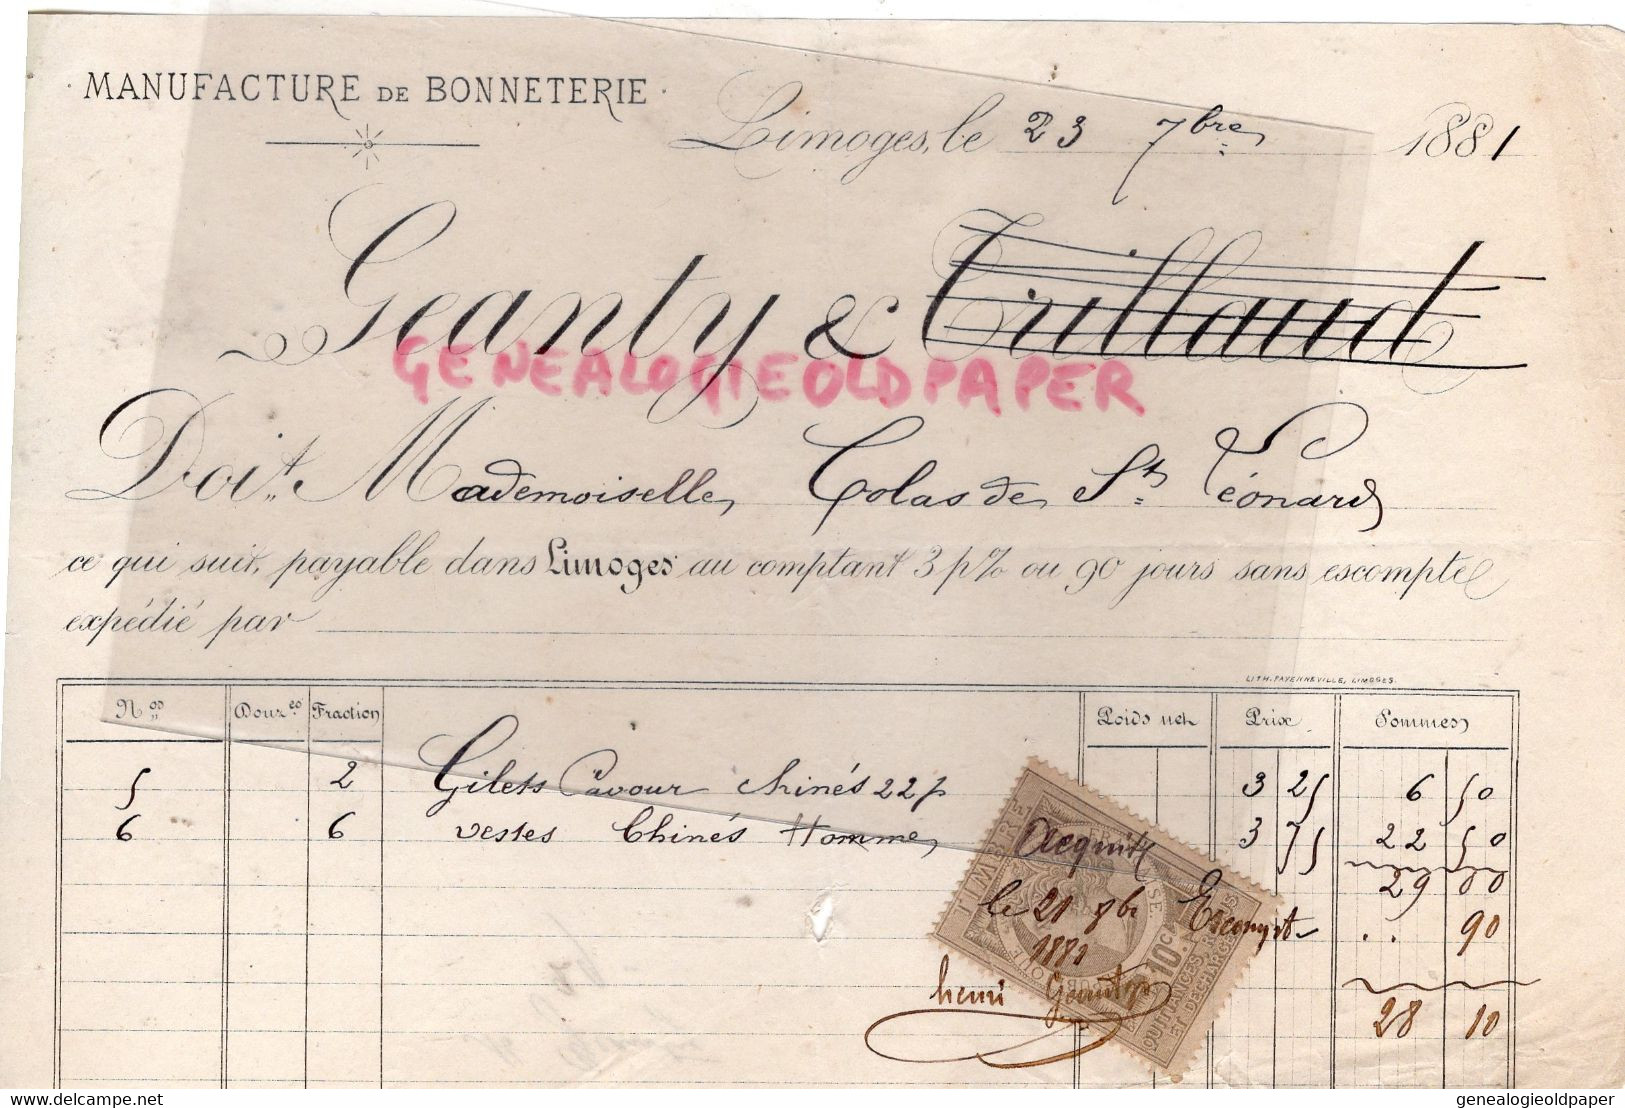 MANUFACTURE DE BONNETERIE
Limoges, le 23 7bre 1881
Geanty & Trillaud
GENEALOGIEOLDPAPER
Doit Mademoiselle Colas de St Léonard
ce qui suit, payable dans Limoges au comptant 3 p% ou 90 jours sans escompte
expédié par
LITH. FAYENNEVILLE, LIMOGES.
Nos Douzes Fraction Poids net Prix Sommes
5 2 Gilets Cavour Chinés 22 p 3 25 6 50
6 6 Vestes Chinés Homme 3 75 22 50
29 00
Acquit
le 21 8bre Escompte .. 90
1881
henri Geanty
28 10
TIMBRE
10 C.
QUITTANCES, REÇUS
ET DÉCHARGES
delcampe.net
genealogieoldpaper